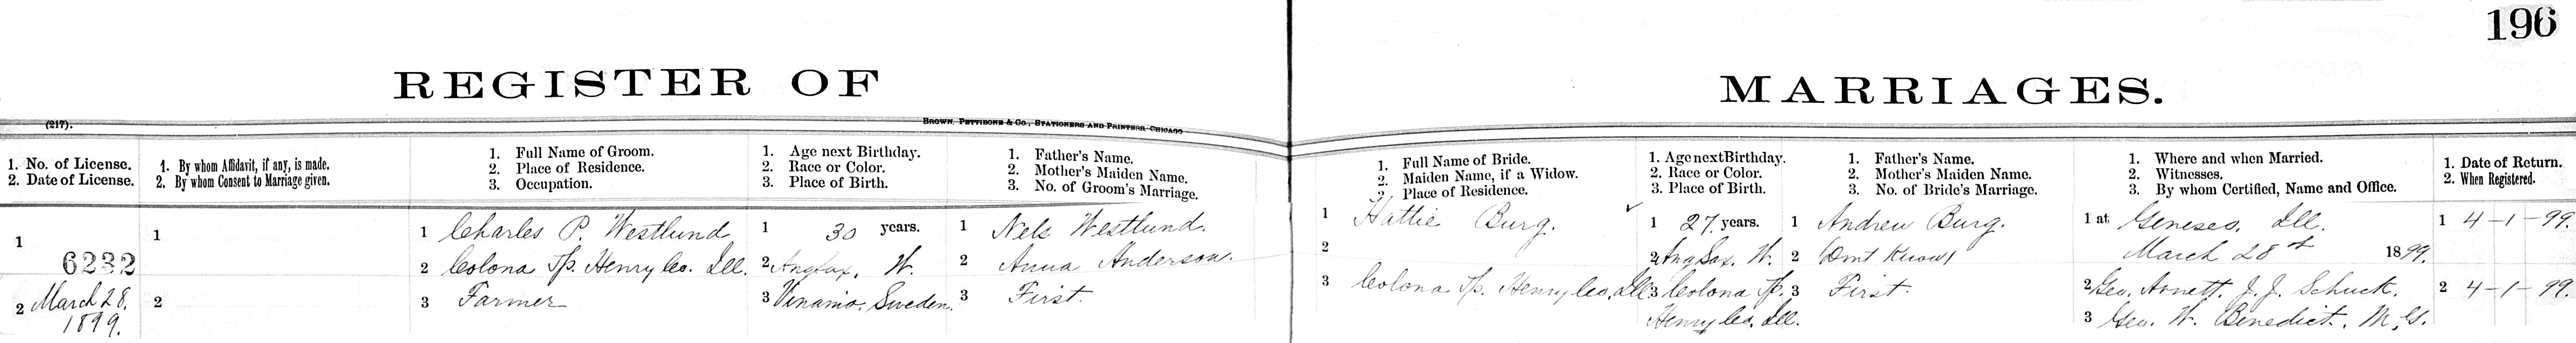 196
REGISTER OF MARRIAGES.
(217).
BROWN, PETTIBONE & CO., STATIONERS AND PRINTERS, CHICAGO
1. No. of License.
2. Date of License.
1. By whom Affidavit, if any, is made.
2. By whom Consent to Marriage given.
1. Full Name of Groom.
2. Place of Residence.
3. Occupation.
1. Age next Birthday.
2. Race or Color.
3. Place of Birth.
1. Father's Name.
2. Mother's Maiden Name.
3. No. of Groom's Marriage.
1. Full Name of Bride.
2. Maiden Name, if a Widow.
3. Place of Residence.
1. Age next Birthday.
2. Race or Color.
3. Place of Birth.
1. Father's Name.
2. Mother's Maiden Name.
3. No. of Bride's Marriage.
1. Where and when Married.
2. Witnesses.
3. By whom Certified, Name and Office.
1. Date of Return.
2. When Registered.
1 6232
2 March 28.
1899.
1
2
1 Charles P. Westlund
2 Colona Tp. Henry Co. Ill.
3 Farmer
1 30 years.
2 AngSax. W.
3 Sweden.
1 Nels Westlund.
2 Anna Anderson.
3 First.
1 Hattie Burg.
2
3 Colona Tp. Henry Co. Ill.
1 27 years.
2 Ang Sax. W.
3 Colona Tp.
Henry Co. Ill.
1 Andrew Burg.
2 (Dont Know)
3 First.
1 at Geneseo, Ill.
March 28th 1899.
2 Geo. Arnett. J. J. Schuck.
3 Geo. W. Benedict. M.G.
1 4-1-99.
2 4-1-99.